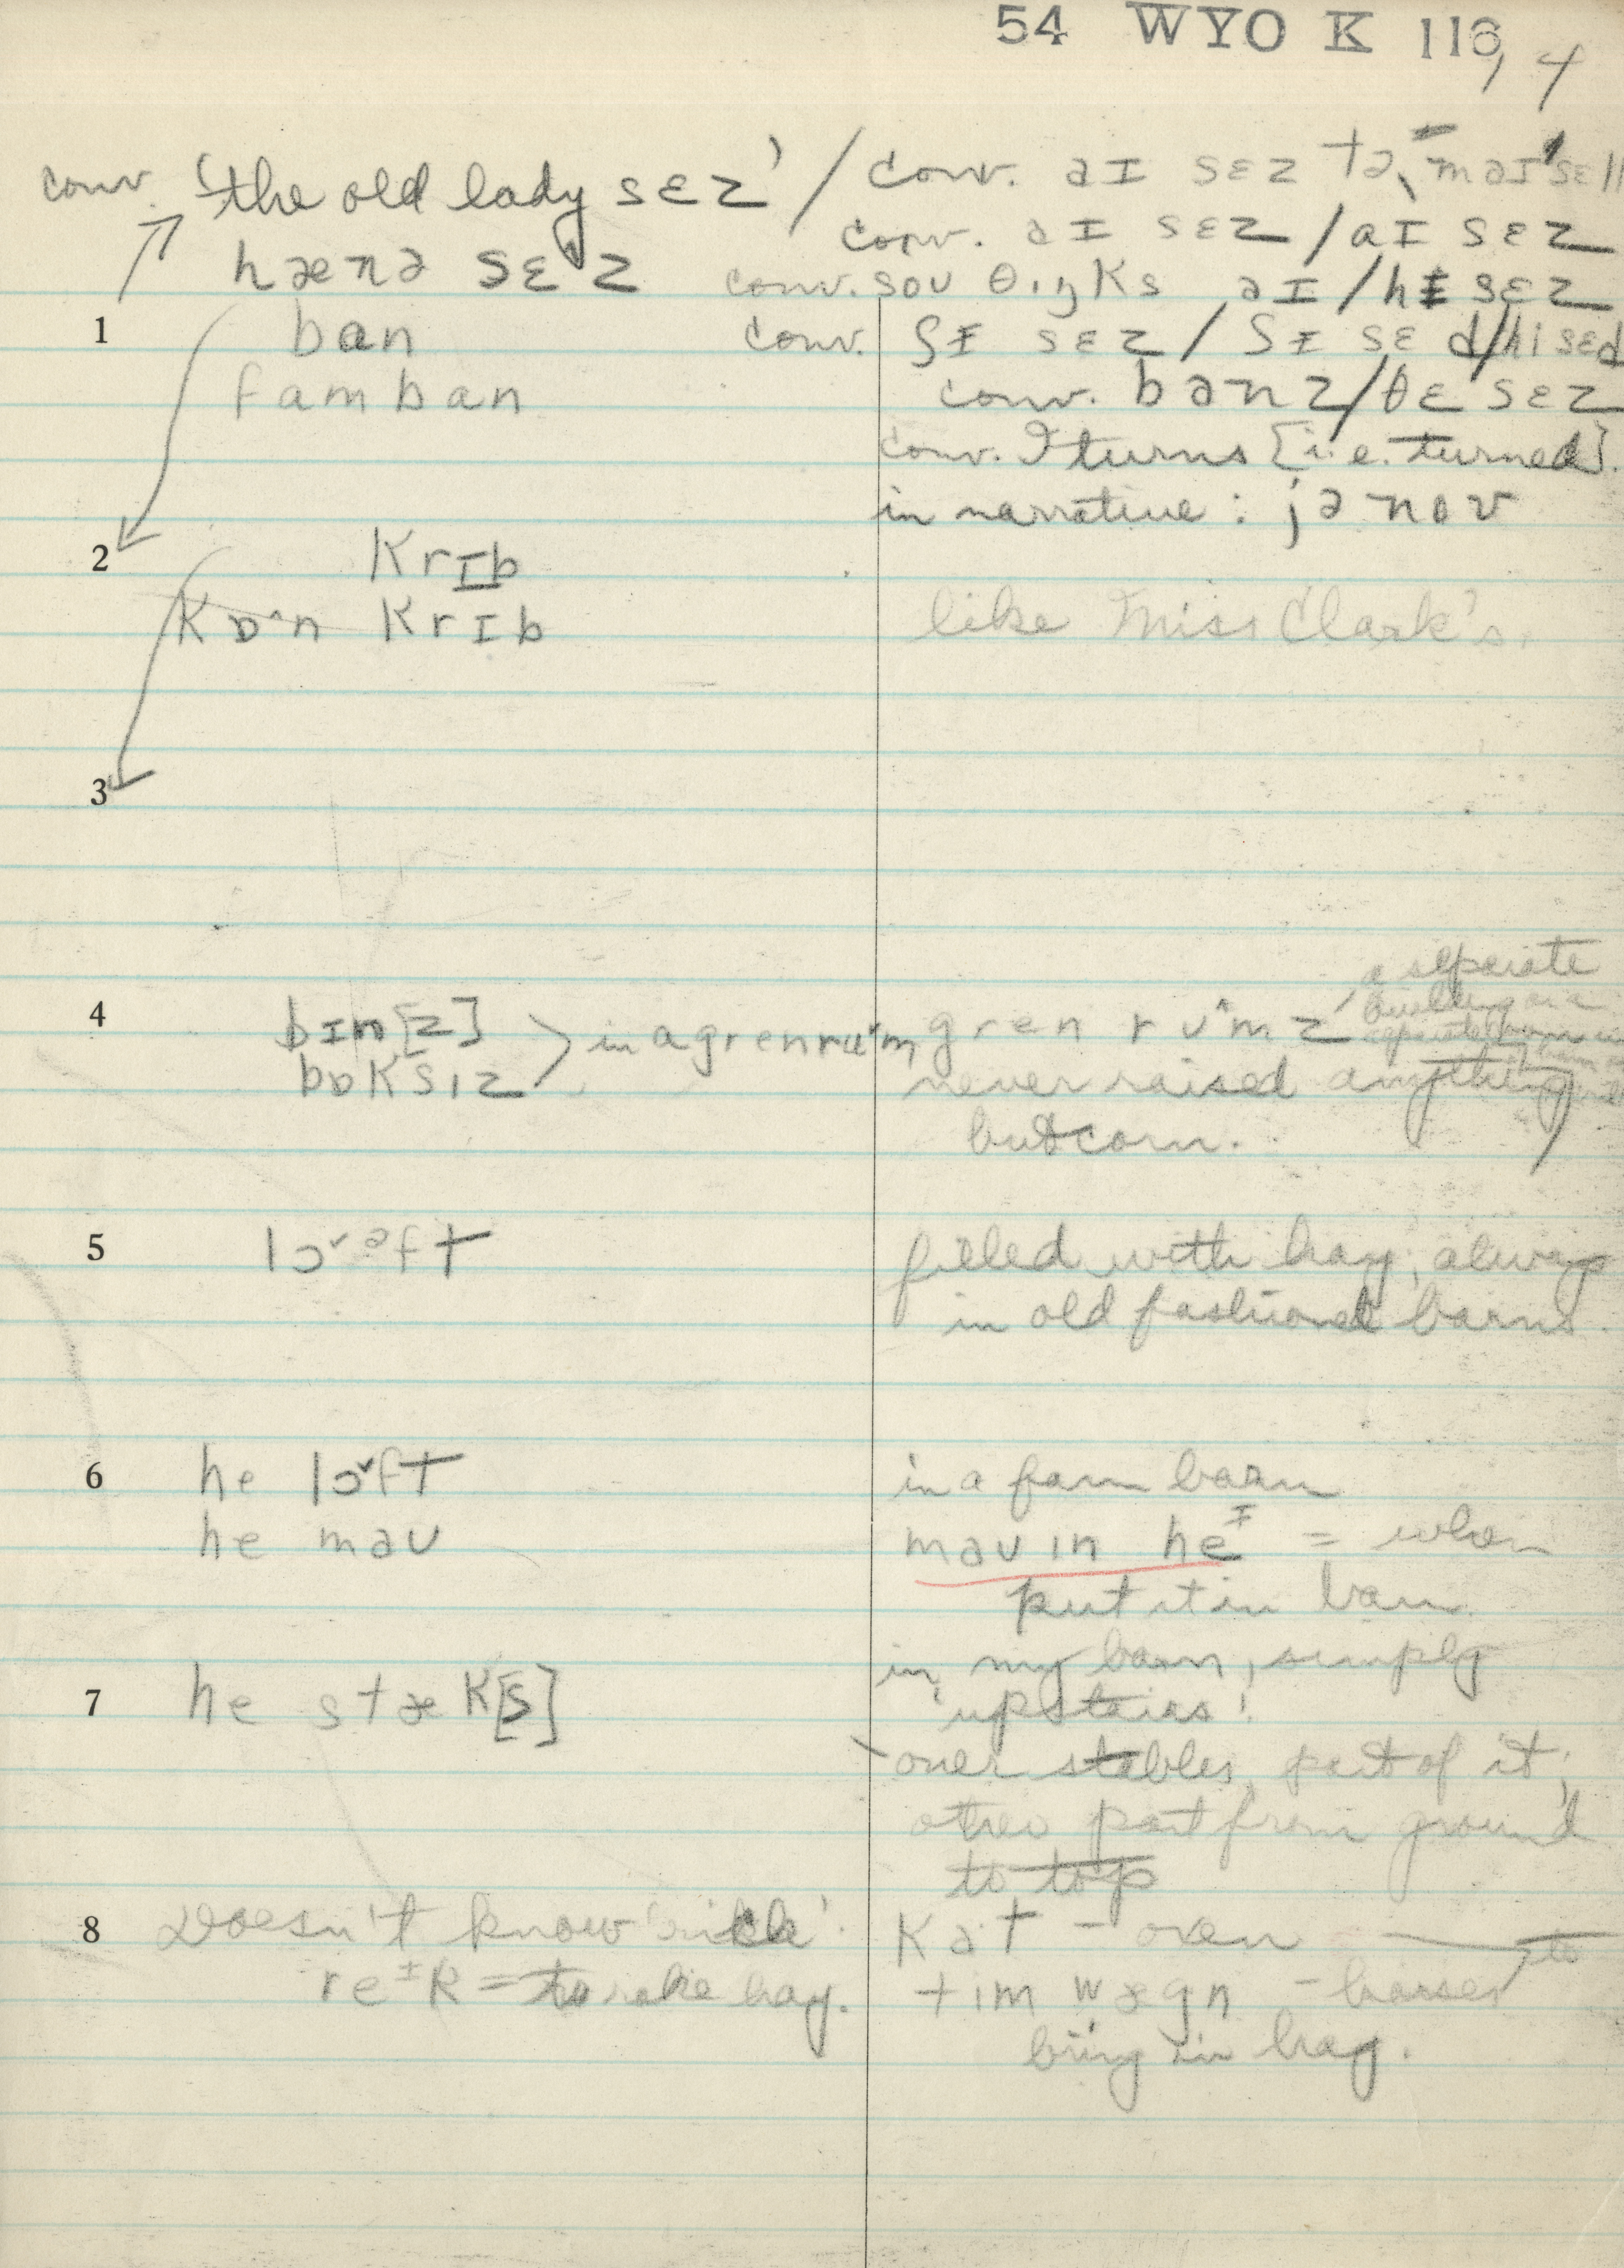 54 WYO K 116
4
conv. 'the old lady sɛz' / conv. aɪ sɛz tə maɪ
conv. aɪ sɛz / aɪ sɛz
hænə sɛz conv. soʊ θɪŋks aɪ / hɪ sɛz
1 ban conv. ʃɪ sɛz / ʃɪ sɛd / hi sɛd
famban conv. banz / ðe sɛz
conv. I turns [i.e. turned].
in narrative: jə noʊ
2 krɪb
kɒ^n krɪb like Miss Clark's.
3
a separate
building
4 bɪn[z] in a grenruᵛm gren ru^mz
bɒksɪz never raised anything
but corn.
5 lɔᵛᵊft filled with hay, always
in old fashioned barns.
6 he lɔᵛft in a farm barn
he maʊ maʊ ɪn heᶦ = when
put it in barn
in my barn, simply
7 he stæk[s] 'upstairs'.
over stables, part of it;
other part from ground
to top
8 Doesn't know 'rick'. kat – oxen
reᶦk = to rake hay. tim wægn – horses to
bring in hay.